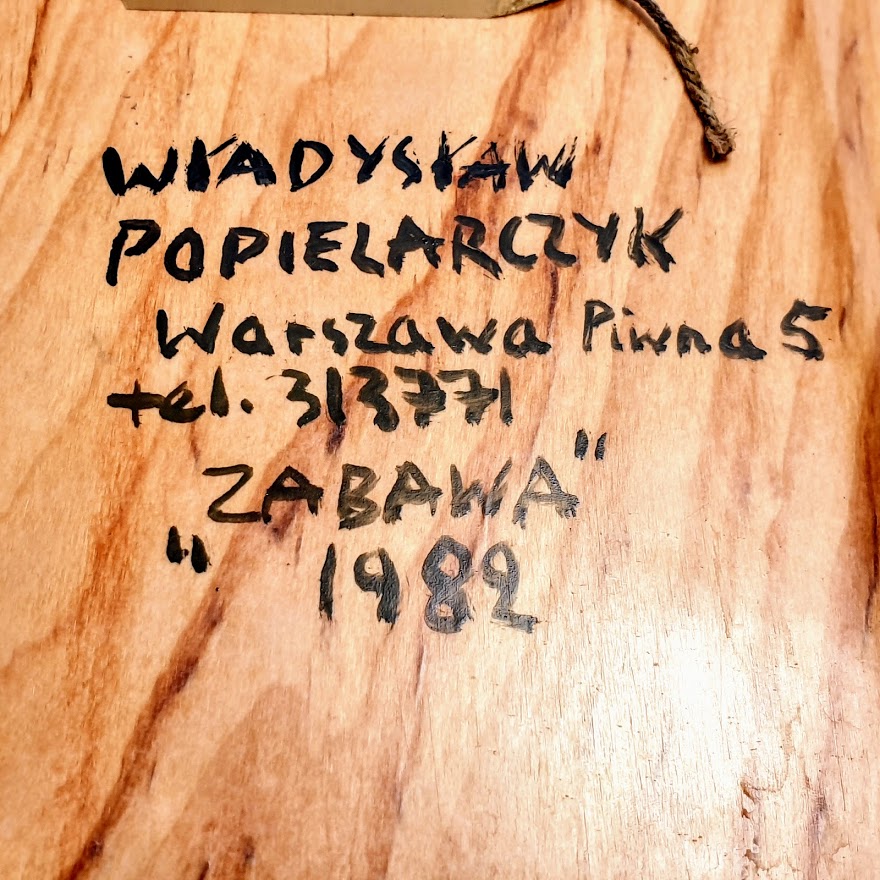 WŁADYSŁAW
POPIELARCZYK
Warszawa Piwna 5
tel. 313771
„ZABAWA”
1982